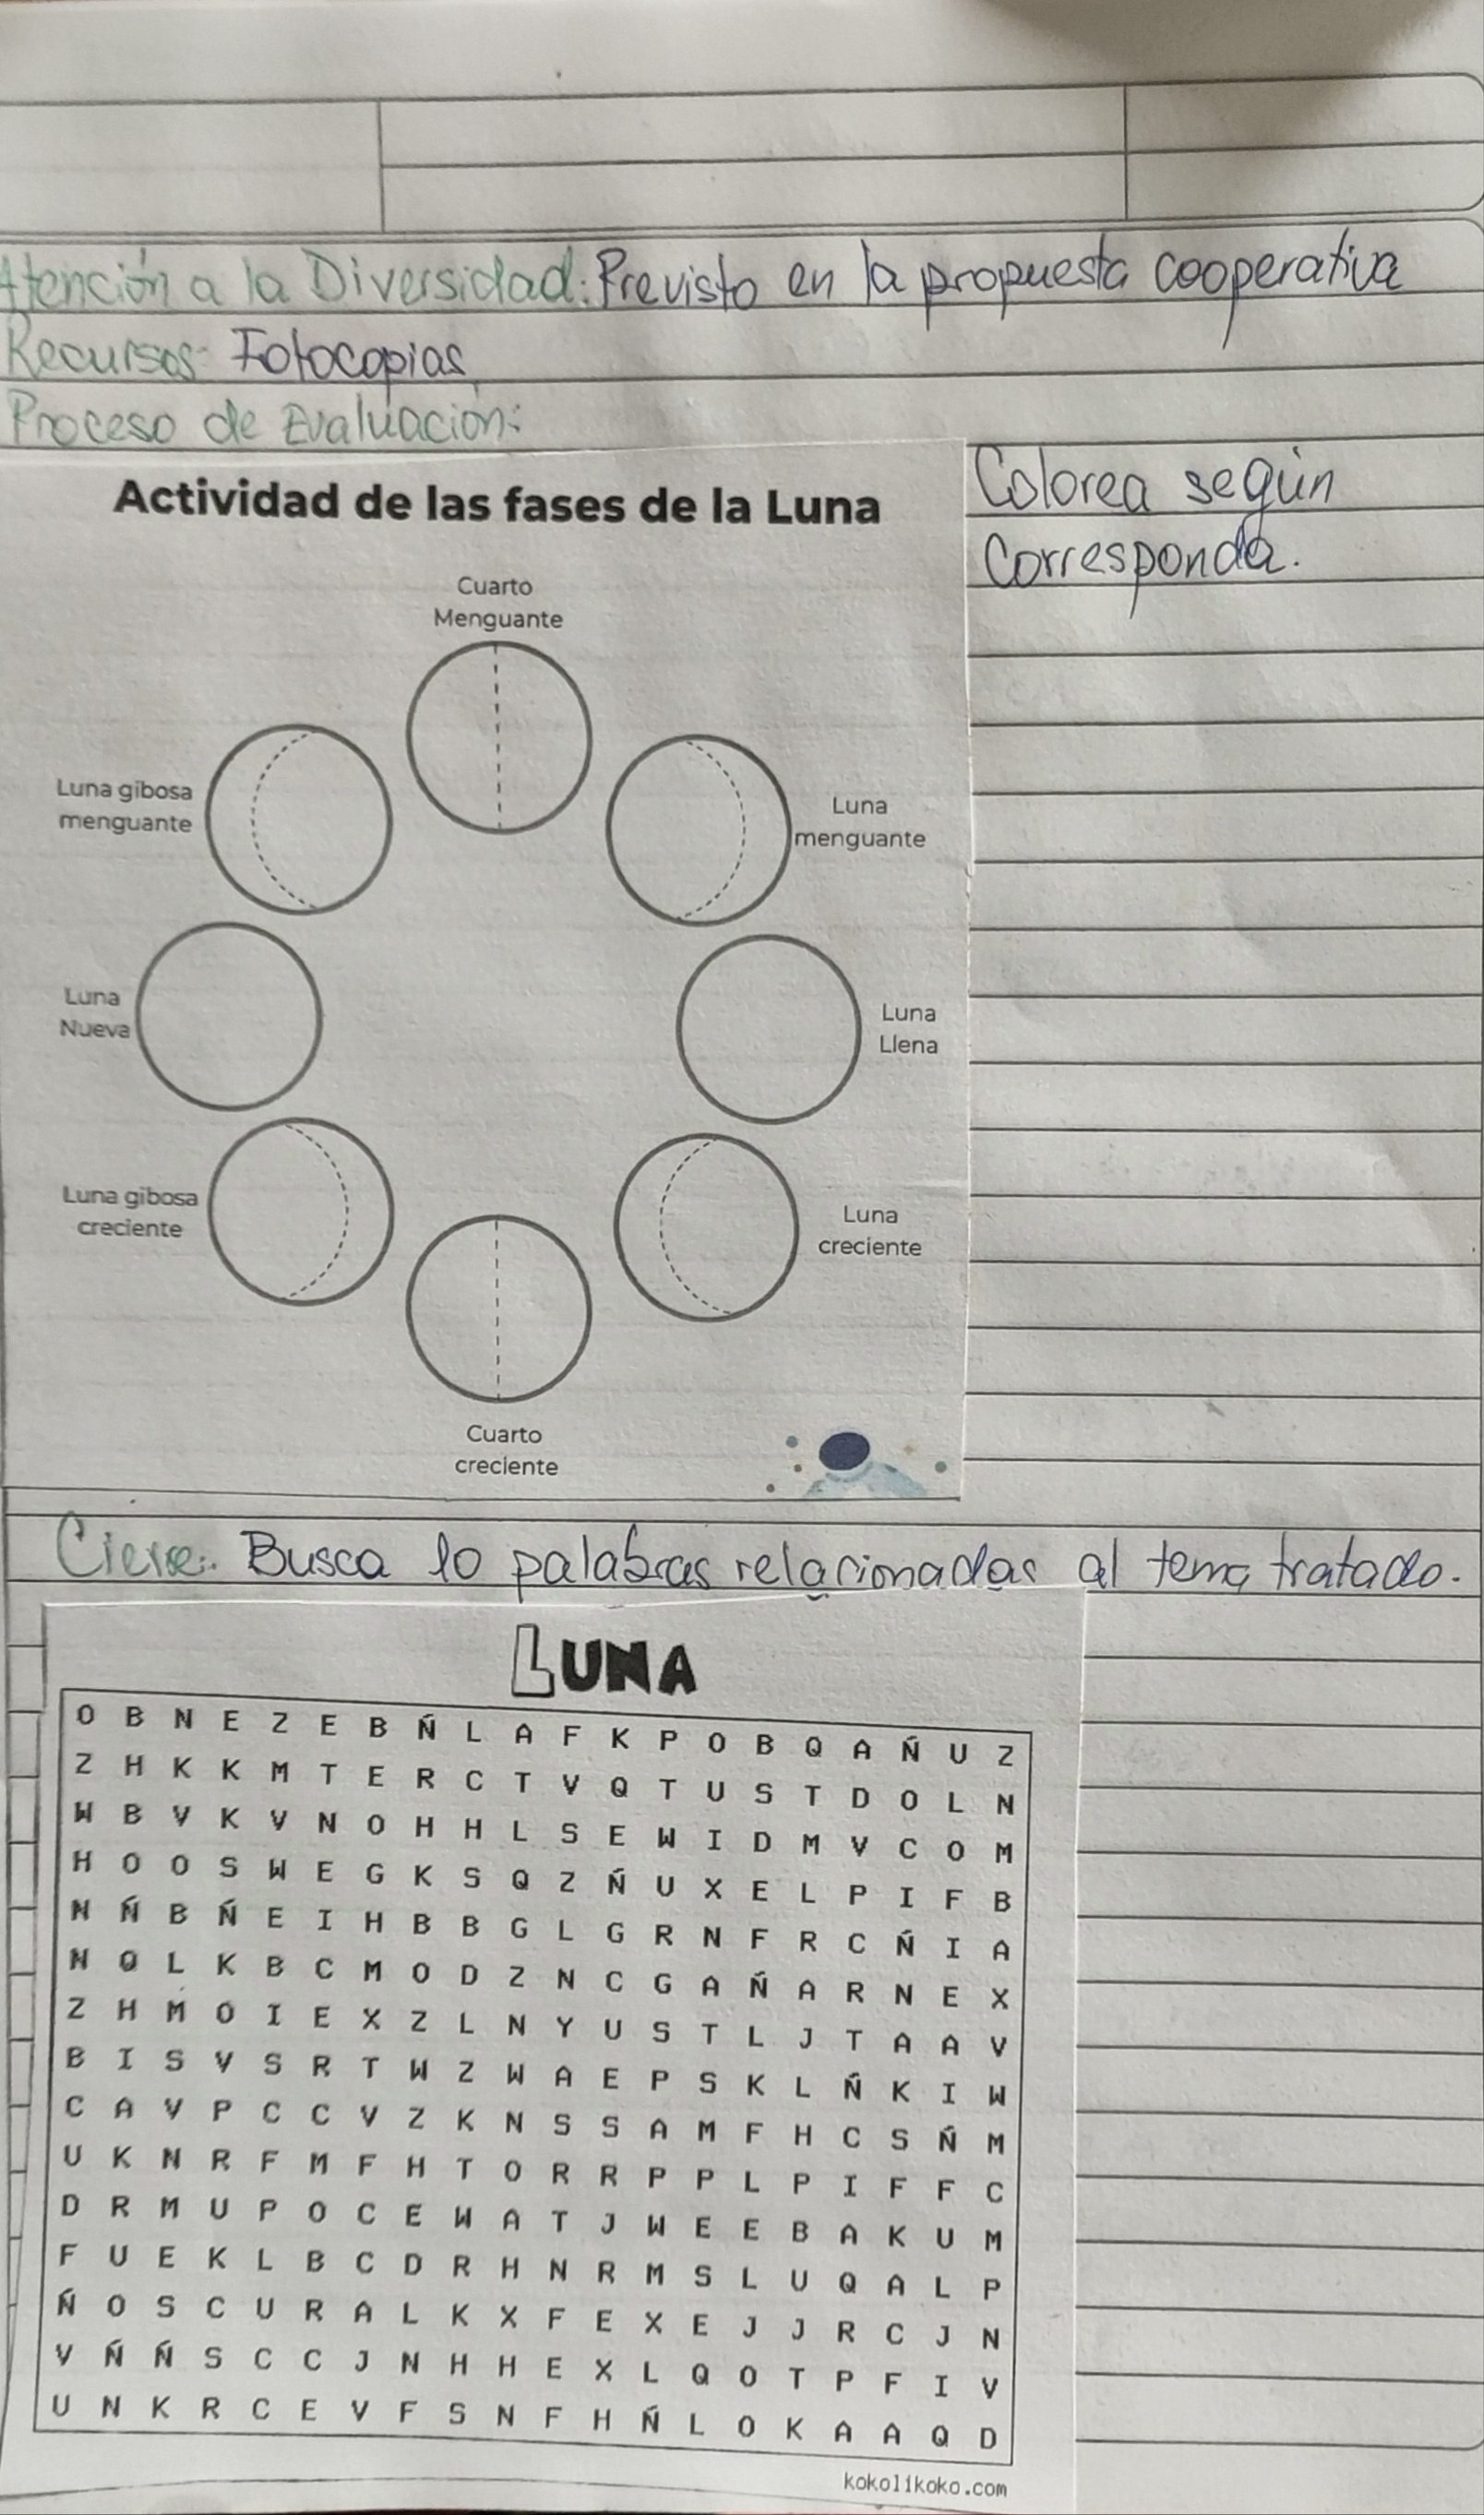 Atención a la Diversidad: Previsto en la propuesta cooperativa
Recursos: Fotocopias
Proceso de Evaluación:
Actividad de las fases de la Luna
Colorea según
corresponda.
Cuarto
Menguante
Luna gibosa
menguante
Luna
menguante
Luna
Nueva
Luna
Llena
Luna gibosa
creciente
Luna
creciente
Cuarto
creciente
Cierre: Busca 10 palabras relacionadas al tema tratado.
LUNA
O B N E Z E B Ñ L A F K P O B Q A Ñ U Z
Z H K K M T E R C T V Q T U S T D O L N
W B V K V N O H H L S E W I D M V C O M
H O O S W E G K S Q Z Ñ U X E L P I F B
N Ñ B Ñ E I H B B G L G R N F R C Ñ I A
N Q L K B C M O D Z N C G A Ñ A R N E X
Z H M O I E X Z L N Y U S T L J T A A V
B I S V S R T W Z W A E P S K L Ñ K I W
C A V P C C V Z K N S S A M F H C S Ñ M
U K N R F M F H T O R R P P L P I F F C
D R M U P O C E W A T J W E E B A K U M
F U E K L B C D R H N R M S L U Q A L P
Ñ O S C U R A L K X F E X E J J R C J N
V Ñ Ñ S C C J N H H E X L Q O T P F I V
U N K R C E V F S N F H Ñ L O K A A Q D
kokolikoko.com